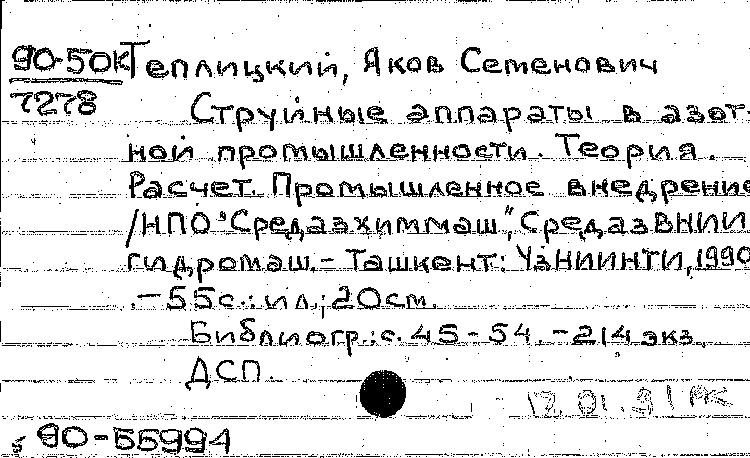 90-50К Теплицкий, Яков Семенович
7278 Струйные аппараты в азот-
ной промышленности. Теория.
Расчет. Промышленное внедрение
/НПО "Средазхиммаш", СредазВНИИ
гидромаш.- Ташкент: УзНИИНТИ, 1990
.-55с.: ил.; 20см.
Библиогр.: с. 45-54.-214 экз.
ДСП.
17.01.91
90-55994